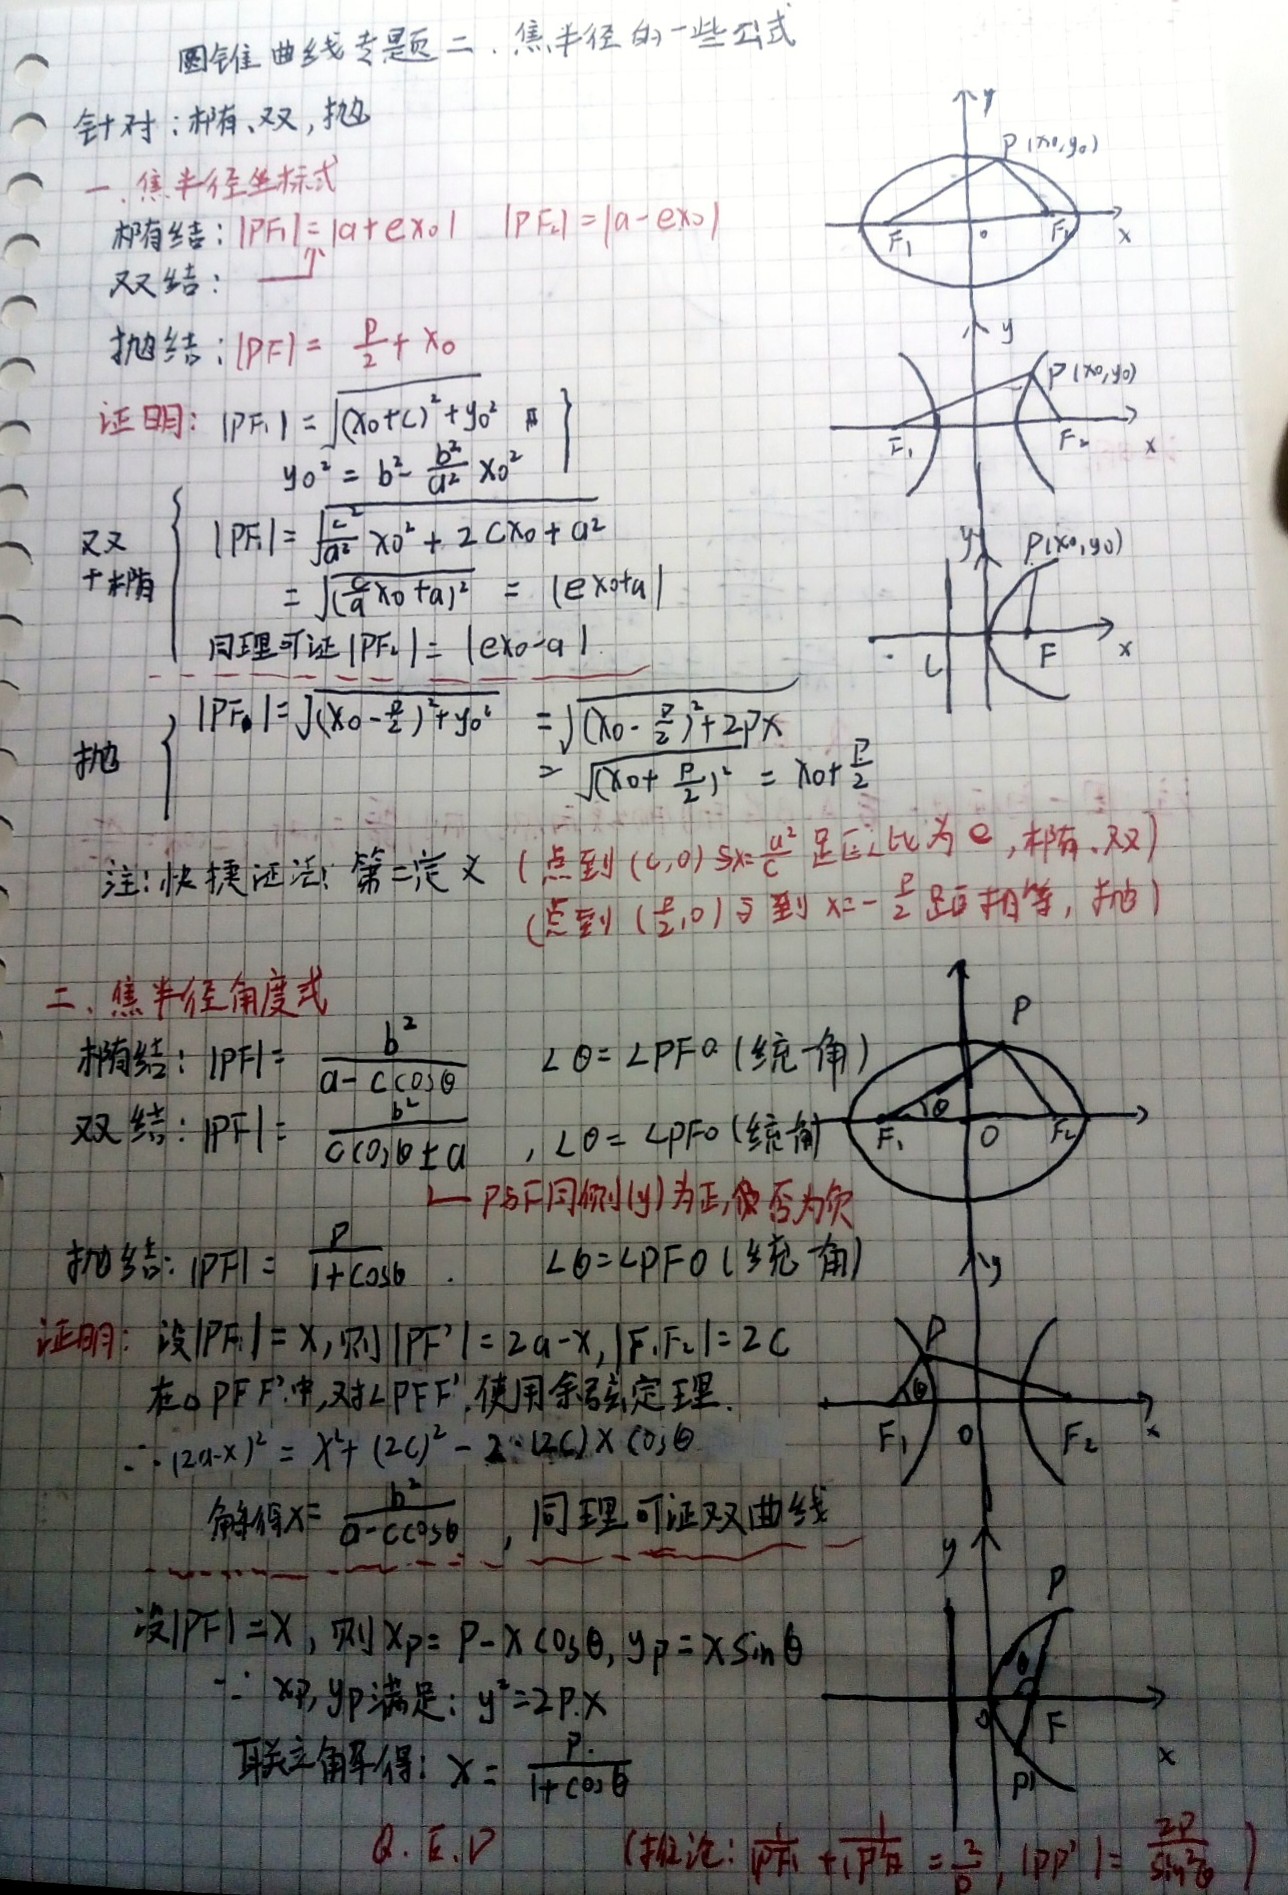 圆锥曲线专题二、焦半径的一些公式
针对:椭、双,抛
一、焦半径坐标式
椭结:|PF₁|=|a+ex₀| |PF₂|=|a-ex₀|
双结:
抛结:|PF|= p/2 + x₀
证明:|PF₁|=√((x₀+c)²+y₀²)
y₀²=b²-b²/a² x₀²
双+椭
|PF₁|=√(c²/a² x₀²+2cx₀+a²)
=√((c/a x₀+a)²) = |ex₀+a|
同理可证|PF₂|=|ex₀-a|
抛
|PF|=√((x₀-p/2)²+y₀²) =√((x₀-p/2)²+2px
=√((x₀+p/2)²) = x₀+p/2
注:快捷证法:第二定义(点到(c,0)与x=a²/c距离之比为e,椭、双)
(点到(p/2,0)与到x=-p/2距相等,抛)
二、焦半径角度式
椭结:|PF|= b²/(a-ccosθ) ∠θ=∠PFO(统一角)
双结:|PF|= b²/(ccosθ±a) ,∠θ=∠PFO(统角)
P与F同侧(y)为正,否为负
抛结:|PF|= p/(1+cosθ) . ∠θ=∠PFO(统一角)
证明:设|PF₁|=x,则|PF'|=2a-x,|F₁F₂|=2c
在△PFF'中,对∠PFF'使用余弦定理.
∴(2a-x)²=x²+(2c)²-2·(2c)xcosθ
解得x= b²/(a-ccosθ) ,同理可证双曲线
设|PF|=x,则x_P=p-xcosθ,y_P=xsinθ
∵x_P,y_P满足:y²=2p.x
联立解得:x= p/(1+cosθ)
Q.E.D (推论:1/|PF| + 1/|P'F| = 2/p ,|PP'|= 2p/sin²θ )
y
P(x₀,y₀)
F₁ o F₂ x
y
P(x₀,y₀)
F₁ F₂ x
y P(x₀,y₀)
L F x
P
θ
F₁ O F₂
y
P
θ
F₁ O F₂ x
y P
θ
O F x
P'